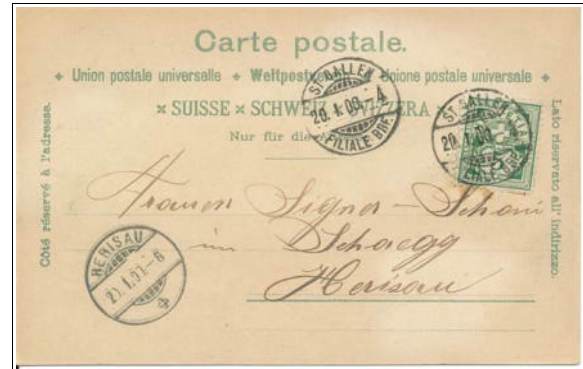 Carte postale.
Union postale universelle Weltpostverein Unione postale universale
× SUISSE × SCHWEIZ SVIZZERA
Nur für die
Côté réservé à l'adresse.
Lato riservato all' indirizzo.
ST. GALLEN
FILIALE
ST. GALLEN
5
Frauen Signer - Schoni
im Schaegg
Herisau
HERISAU